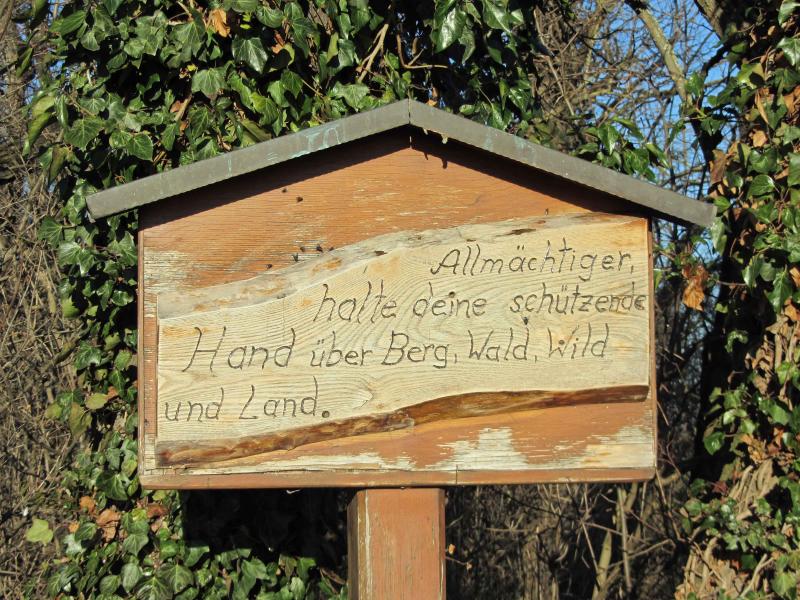 Allmächtiger,
halte deine schützende
Hand über Berg, Wald, Wild
und Land.